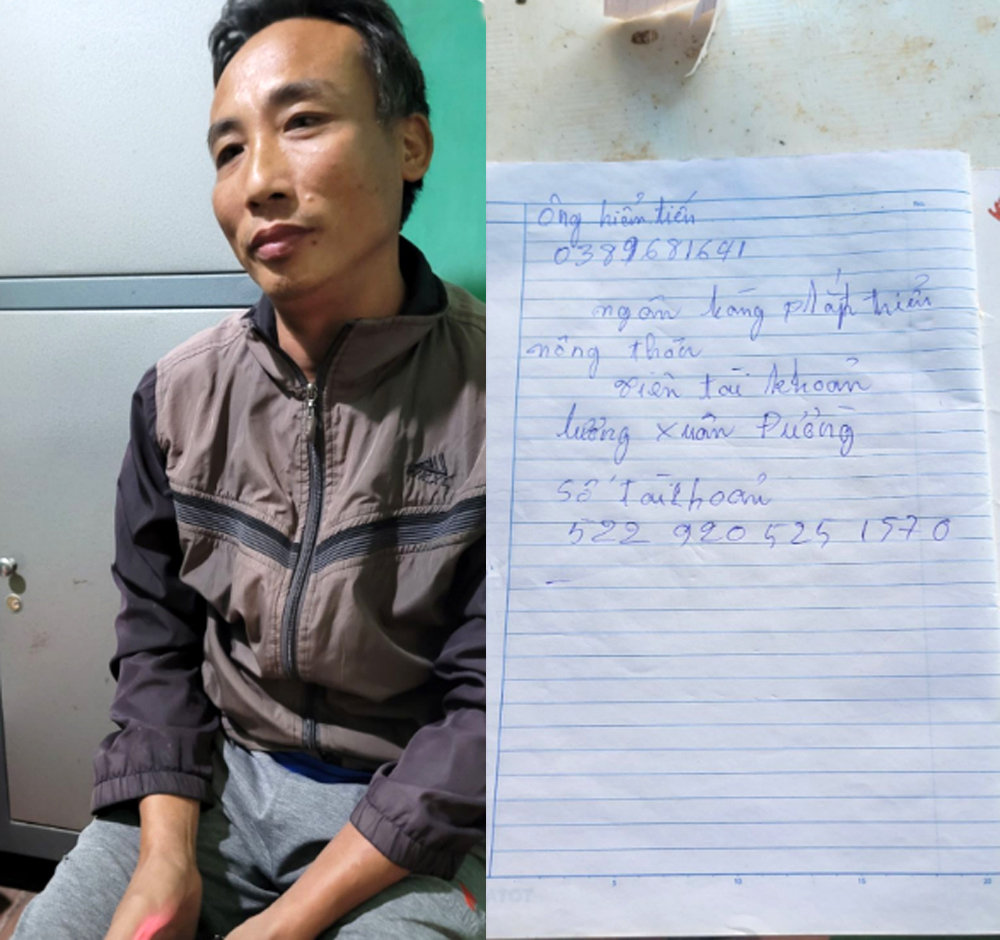 Ông hiển tiến
0389681641
ngân hàng phắp triển
nông thôn
viên tài khoản
lường xuân Đường
Số tài khoản
522 920 525 1570